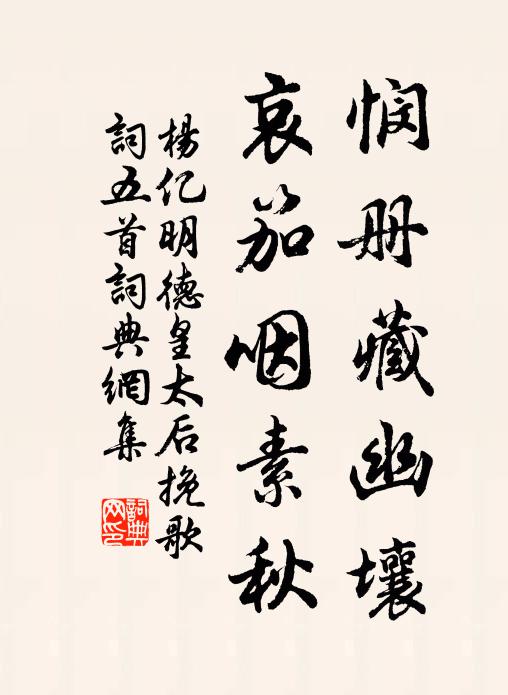 悯册藏幽壤
哀笳咽素秋
楊亿明德皇太后挽歌
詞五首詞典網集
詞典
网印